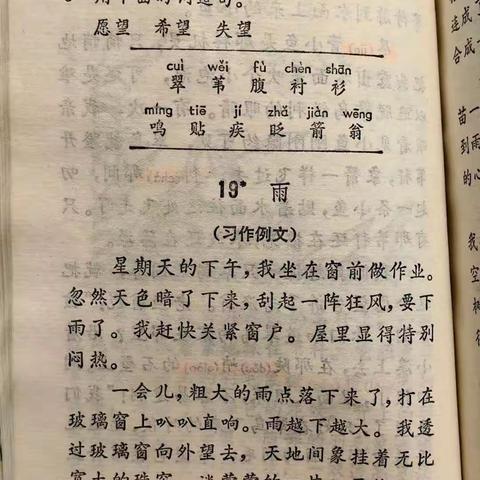 愿望 希望 失望
cuì wěi fù chèn shān
翠 苇 腹 衬 衫
míng tiē jí zhǎ jiàn wēng
鸣 贴 疾 眨 箭 翁
19* 雨
(习作例文)
星期天的下午，我坐在窗前做作业。
忽然天色暗了下来，刮起一阵狂风，要下
雨了。我赶快关紧窗户。屋里显得特别
闷热。
一会儿，粗大的雨点落下来了，打在
玻璃窗上叭叭直响。雨越下越大。我透
过玻璃窗向外望去，天地间象挂着无比
宽大的珠帘，
连成
合成一
苗一
到雨
的心
我
空